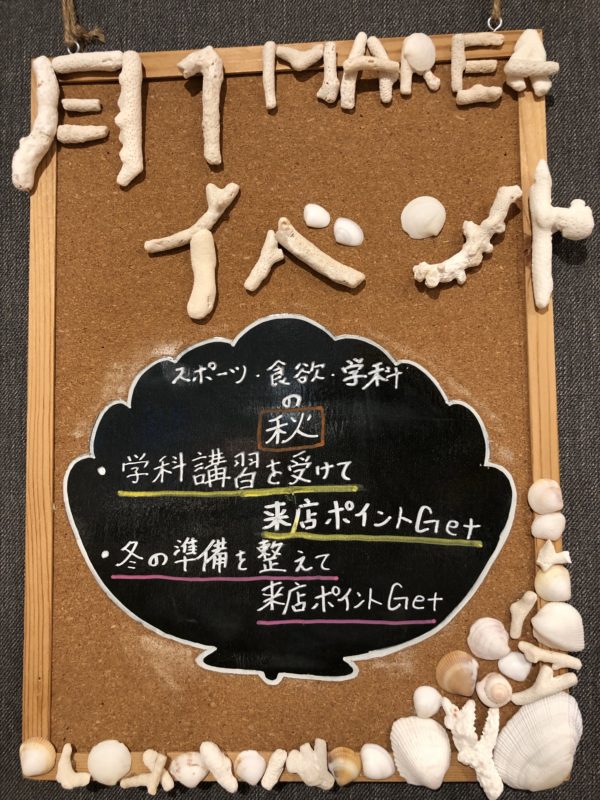 月1 MAREA
イベント
スポーツ・食欲・学科
の
秋
・学科講習を受けて
来店ポイントGet
・冬の準備を整えて
来店ポイントGet